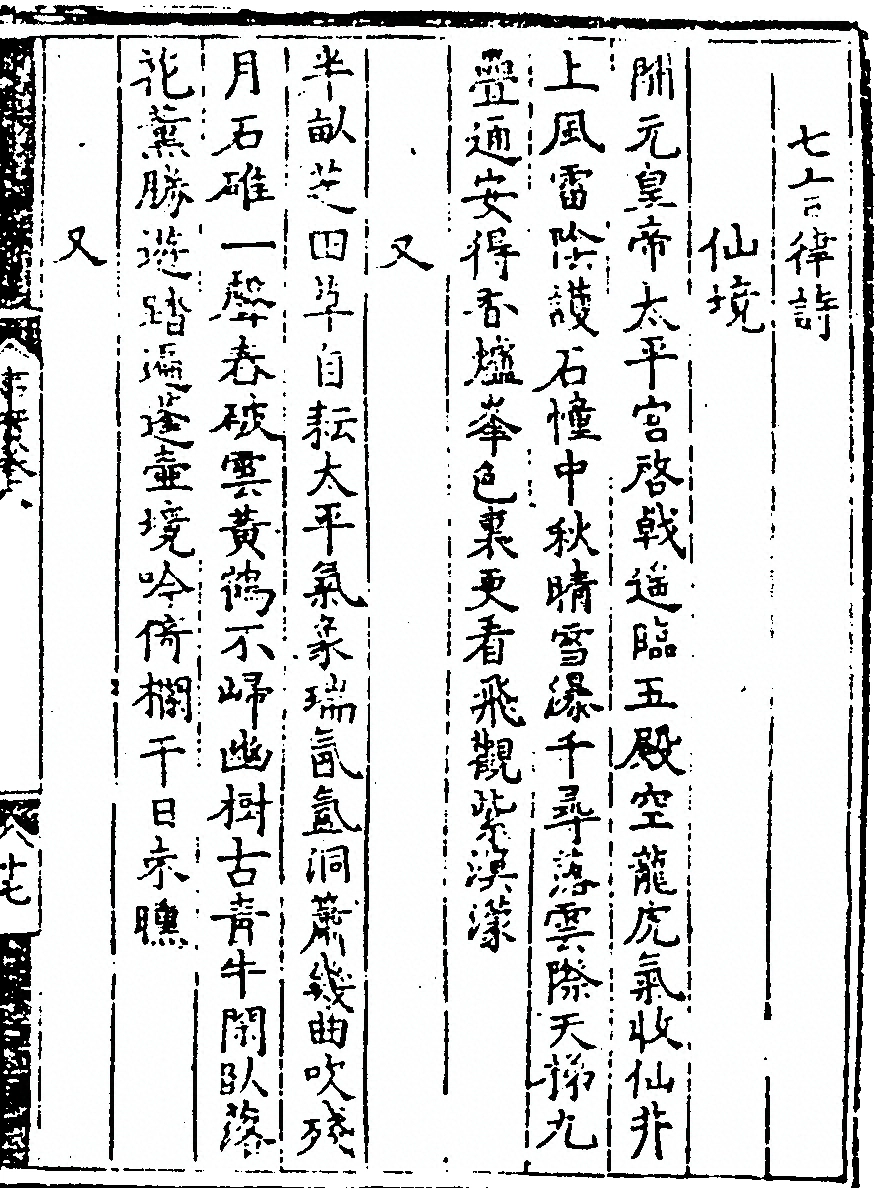 七言律詩
仙境
開元皇帝太平宮啓戟遥臨五殿空龍虎氣收仙井
上風雷陰護石幢中秋晴雪瀑千尋落雲際天梯九
疊通安得香爐峯色裏更看飛觀紫溟濛
又
半畝芝田草自耘太平氣象瑞氤氳洞簫幾曲吹殘
月石碓一聲舂破雲黄鶴不歸幽樹古青牛閑臥落
花薰勝遊踏遍蓬壺境吟倚欄干日未曛
又
卷六
八十七